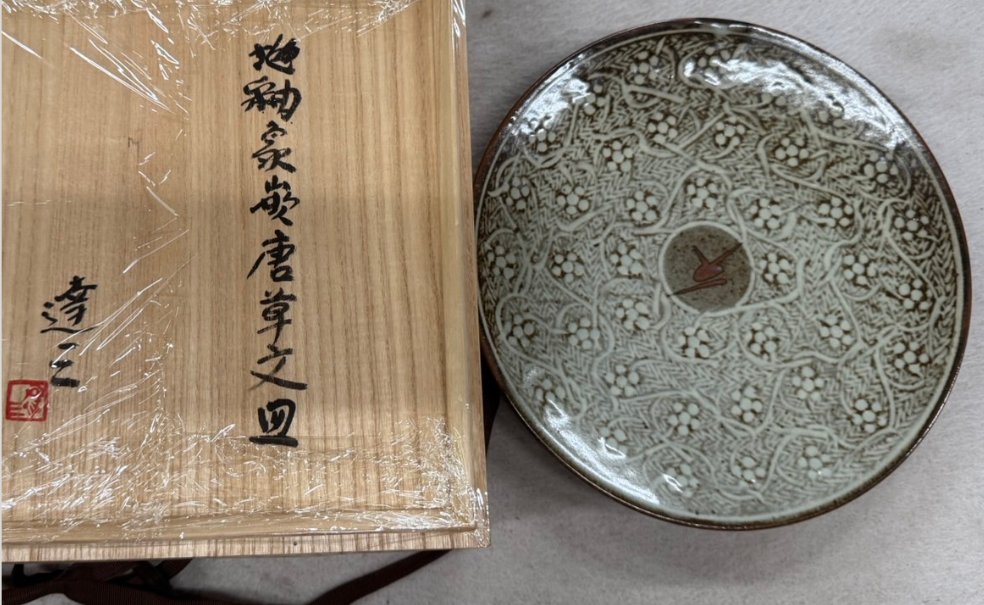 地釉象嵌唐草文皿
達三